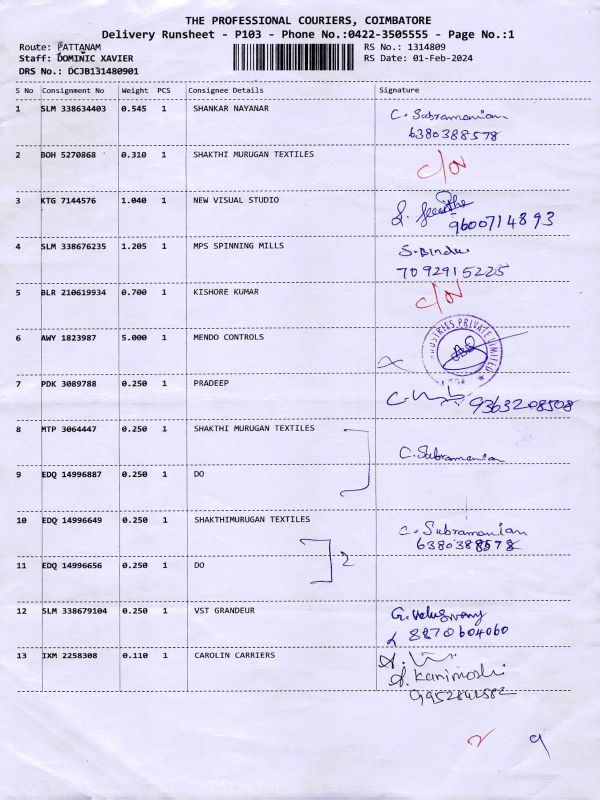 THE PROFESSIONAL COURIERS, COIMBATORE
Delivery Runsheet - P103 - Phone No.:0422-3505555 - Page No.:1
Route: PATTANAM RS No.: 1314809
Staff: DOMINIC XAVIER RS Date: 01-Feb-2024
DRS No.: DCJB131480901
S No Consignment No Weight PCS Consignee Details Signature
1 SLM 338634403 0.545 1 SHANKAR NAYANAR C. Subramanian
6380388578
2 BOH 5270868 0.310 1 SHAKTHI MURUGAN TEXTILES C/N
3 KTG 7144576 1.040 1 NEW VISUAL STUDIO
9600714893
4 SLM 338676235 1.205 1 MPS SPINNING MILLS S. Bindu
7092915225
5 BLR 210619934 0.700 1 KISHORE KUMAR C/N
6 AWY 1823987 5.000 1 MENDO CONTROLS INDUSTRIES PRIVATE LIMITED
7 PDK 3089788 0.250 1 PRADEEP 9363208508
8 MTP 3064447 0.250 1 SHAKTHI MURUGAN TEXTILES C. Subramanian
9 EDQ 14996887 0.250 1 DO
10 EDQ 14996649 0.250 1 SHAKTHIMURUGAN TEXTILES C. Subramanian
6380388578
11 EDQ 14996656 0.250 1 DO 2
12 SLM 338679104 0.250 1 VST GRANDEUR G. Velusamy
8870604060
13 IXM 2258308 0.110 1 CAROLIN CARRIERS
A. Kanimozhi
2 9